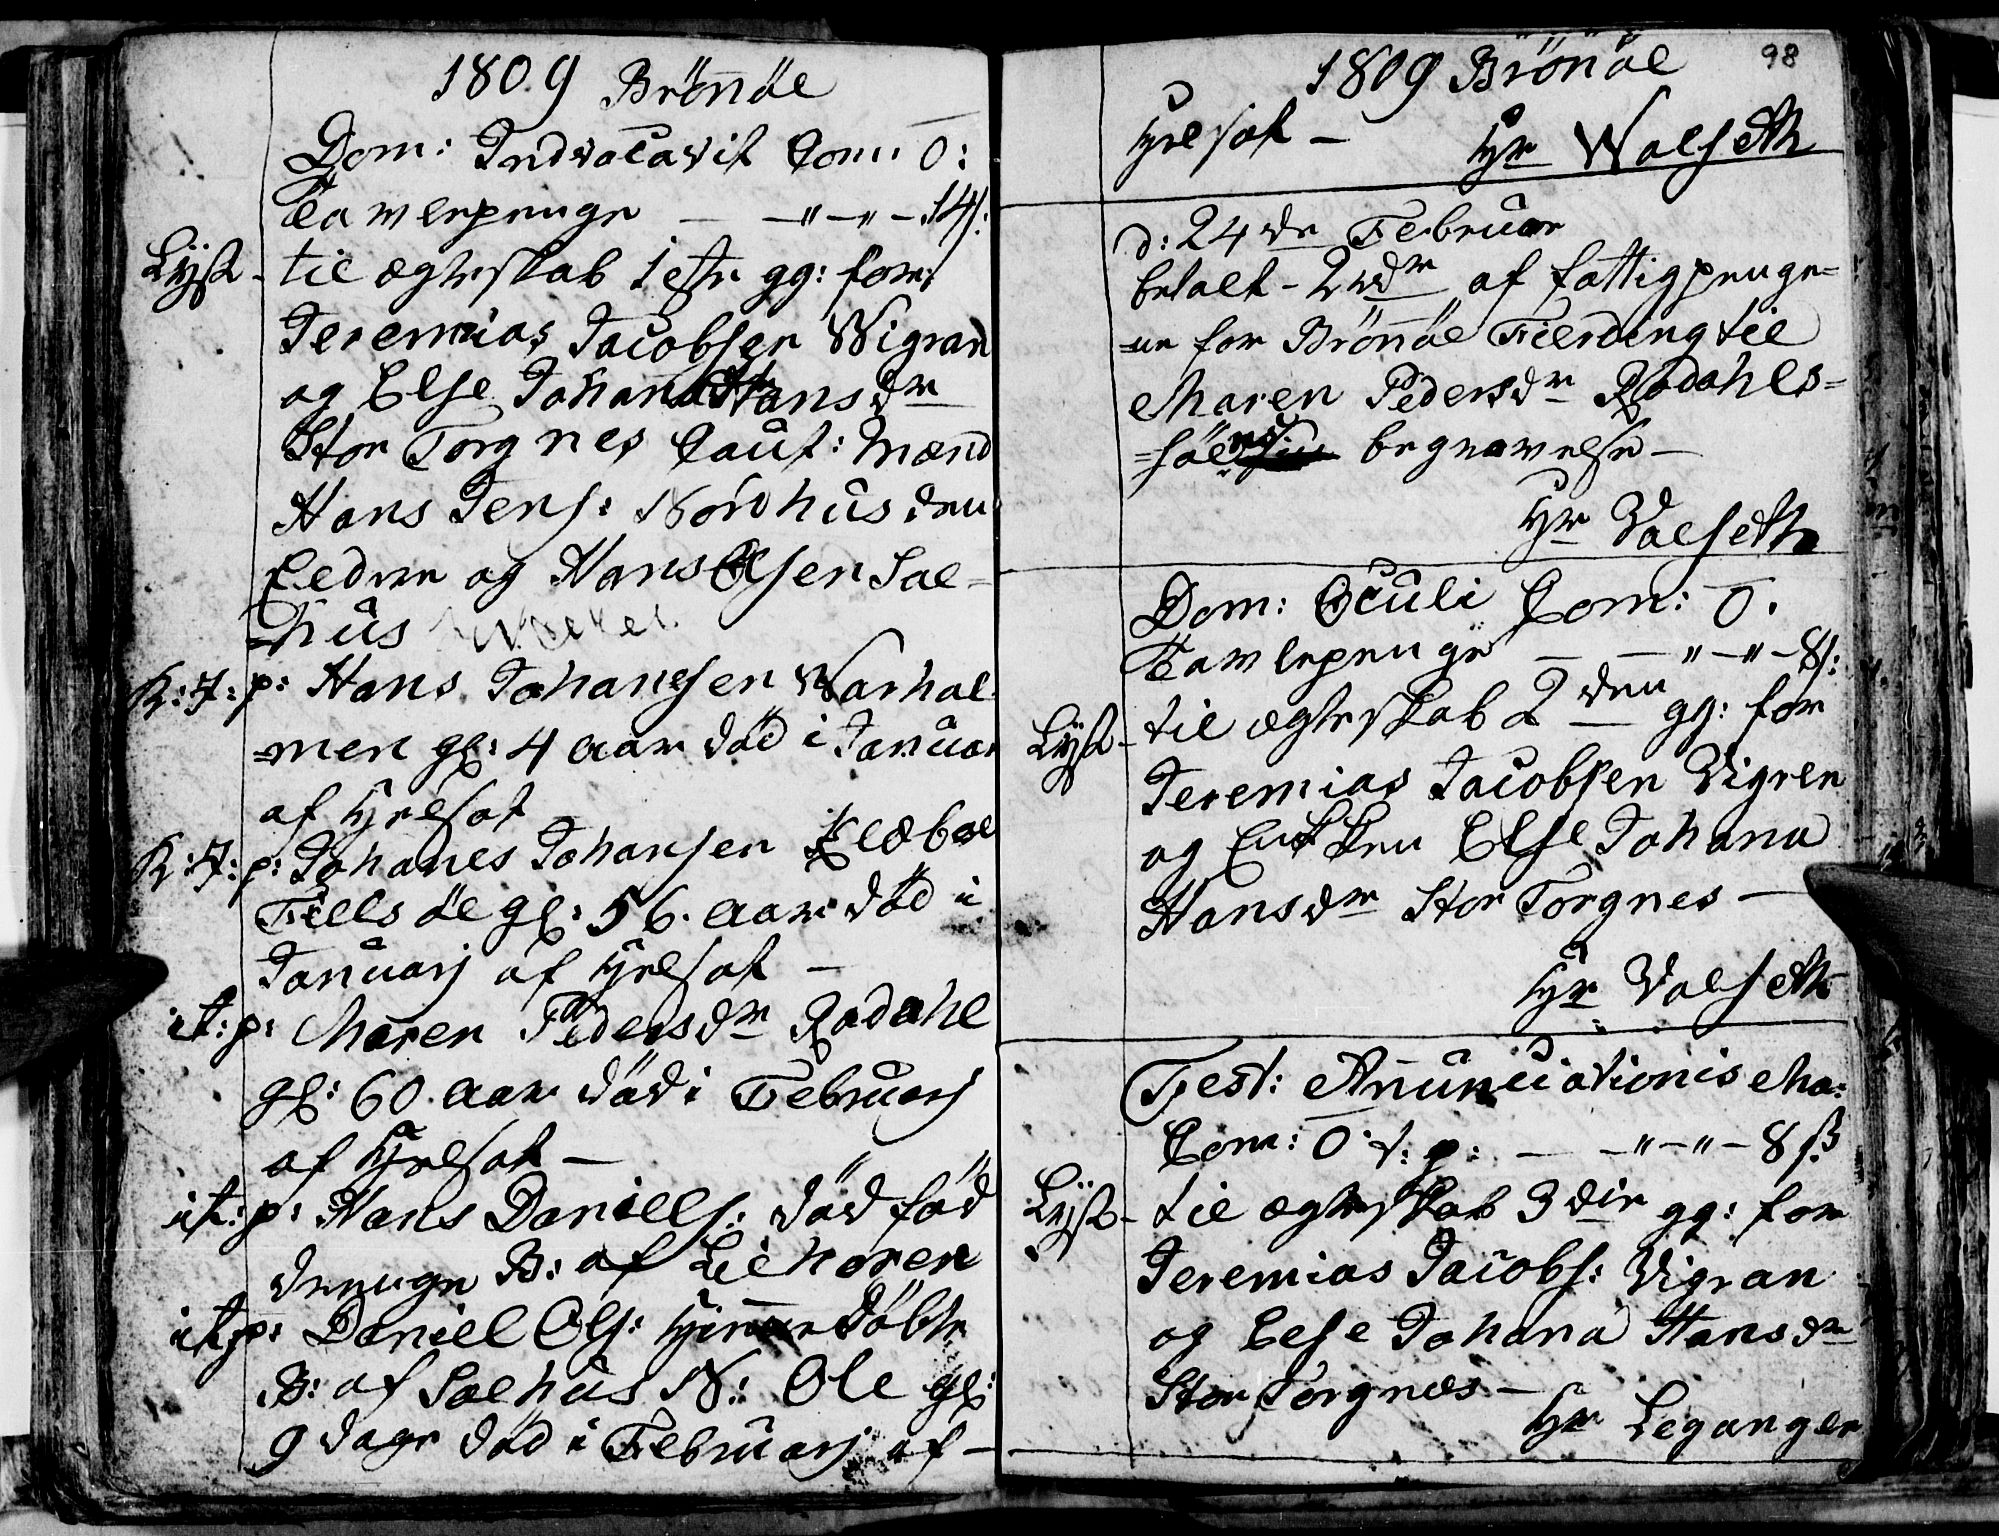 1809 Brönöe
Dom: Invocavit Com: 0:
Tavlepenge — —"—"—14s:
Lyst - til ægteskab 1ste gg: for
Jeremias Jacobsen Wigran
og Else Johana Hansdr
Stor Torgnes Caut: Mænd
Hans Jens: Nordhus den
Eedre og Hans Olsen Sal=
=hus
K: J: p: Hans Johansen Warhol
=men gl: 4 aar död i Januar
af hjelsot
K: J: p: Johanes Johansen Klæboe
Tiells öe gl: 56. aar död i
Januarj af hjelsot —
it: p: Maren Pedersdr Rodahl
gl: 60 aar död i Februarj
af hjelsot —
it: p: Hans Daniels: död föd
drenge B: af
it p: Daniel Ols: hjemme döbte
B: af Salhus N: Ole gl:
9 dage död i Februarj af —
1809 Brönöe 98
hjelsot — Hr Wolseth
d: 24de Februar
betalt - 2 rdr af fattigpenge=
=ne for Brönöe Fierding til
Maren Pedersdr Rodahls=
begravelse —
Hr Volseth
Dom: Oculi Com: 0.
Tavlepenge — —"—"—8s:
Lyst - til ægteskab 2den gg: for
Jeremias Jacobsen Vigren
og Enken Else Johana
Hansdr Stor Torgnes —
Hr Volseth
Fest: Anunciationis Ma:
Com: 0 t: p: — —"—"—8 ß
Lyst - til ægteskab 3die gg: for
Jeremias Jacobs: Vigran
og Else Johana Hansdr
Stor Torgnæs —
Hr Leganger